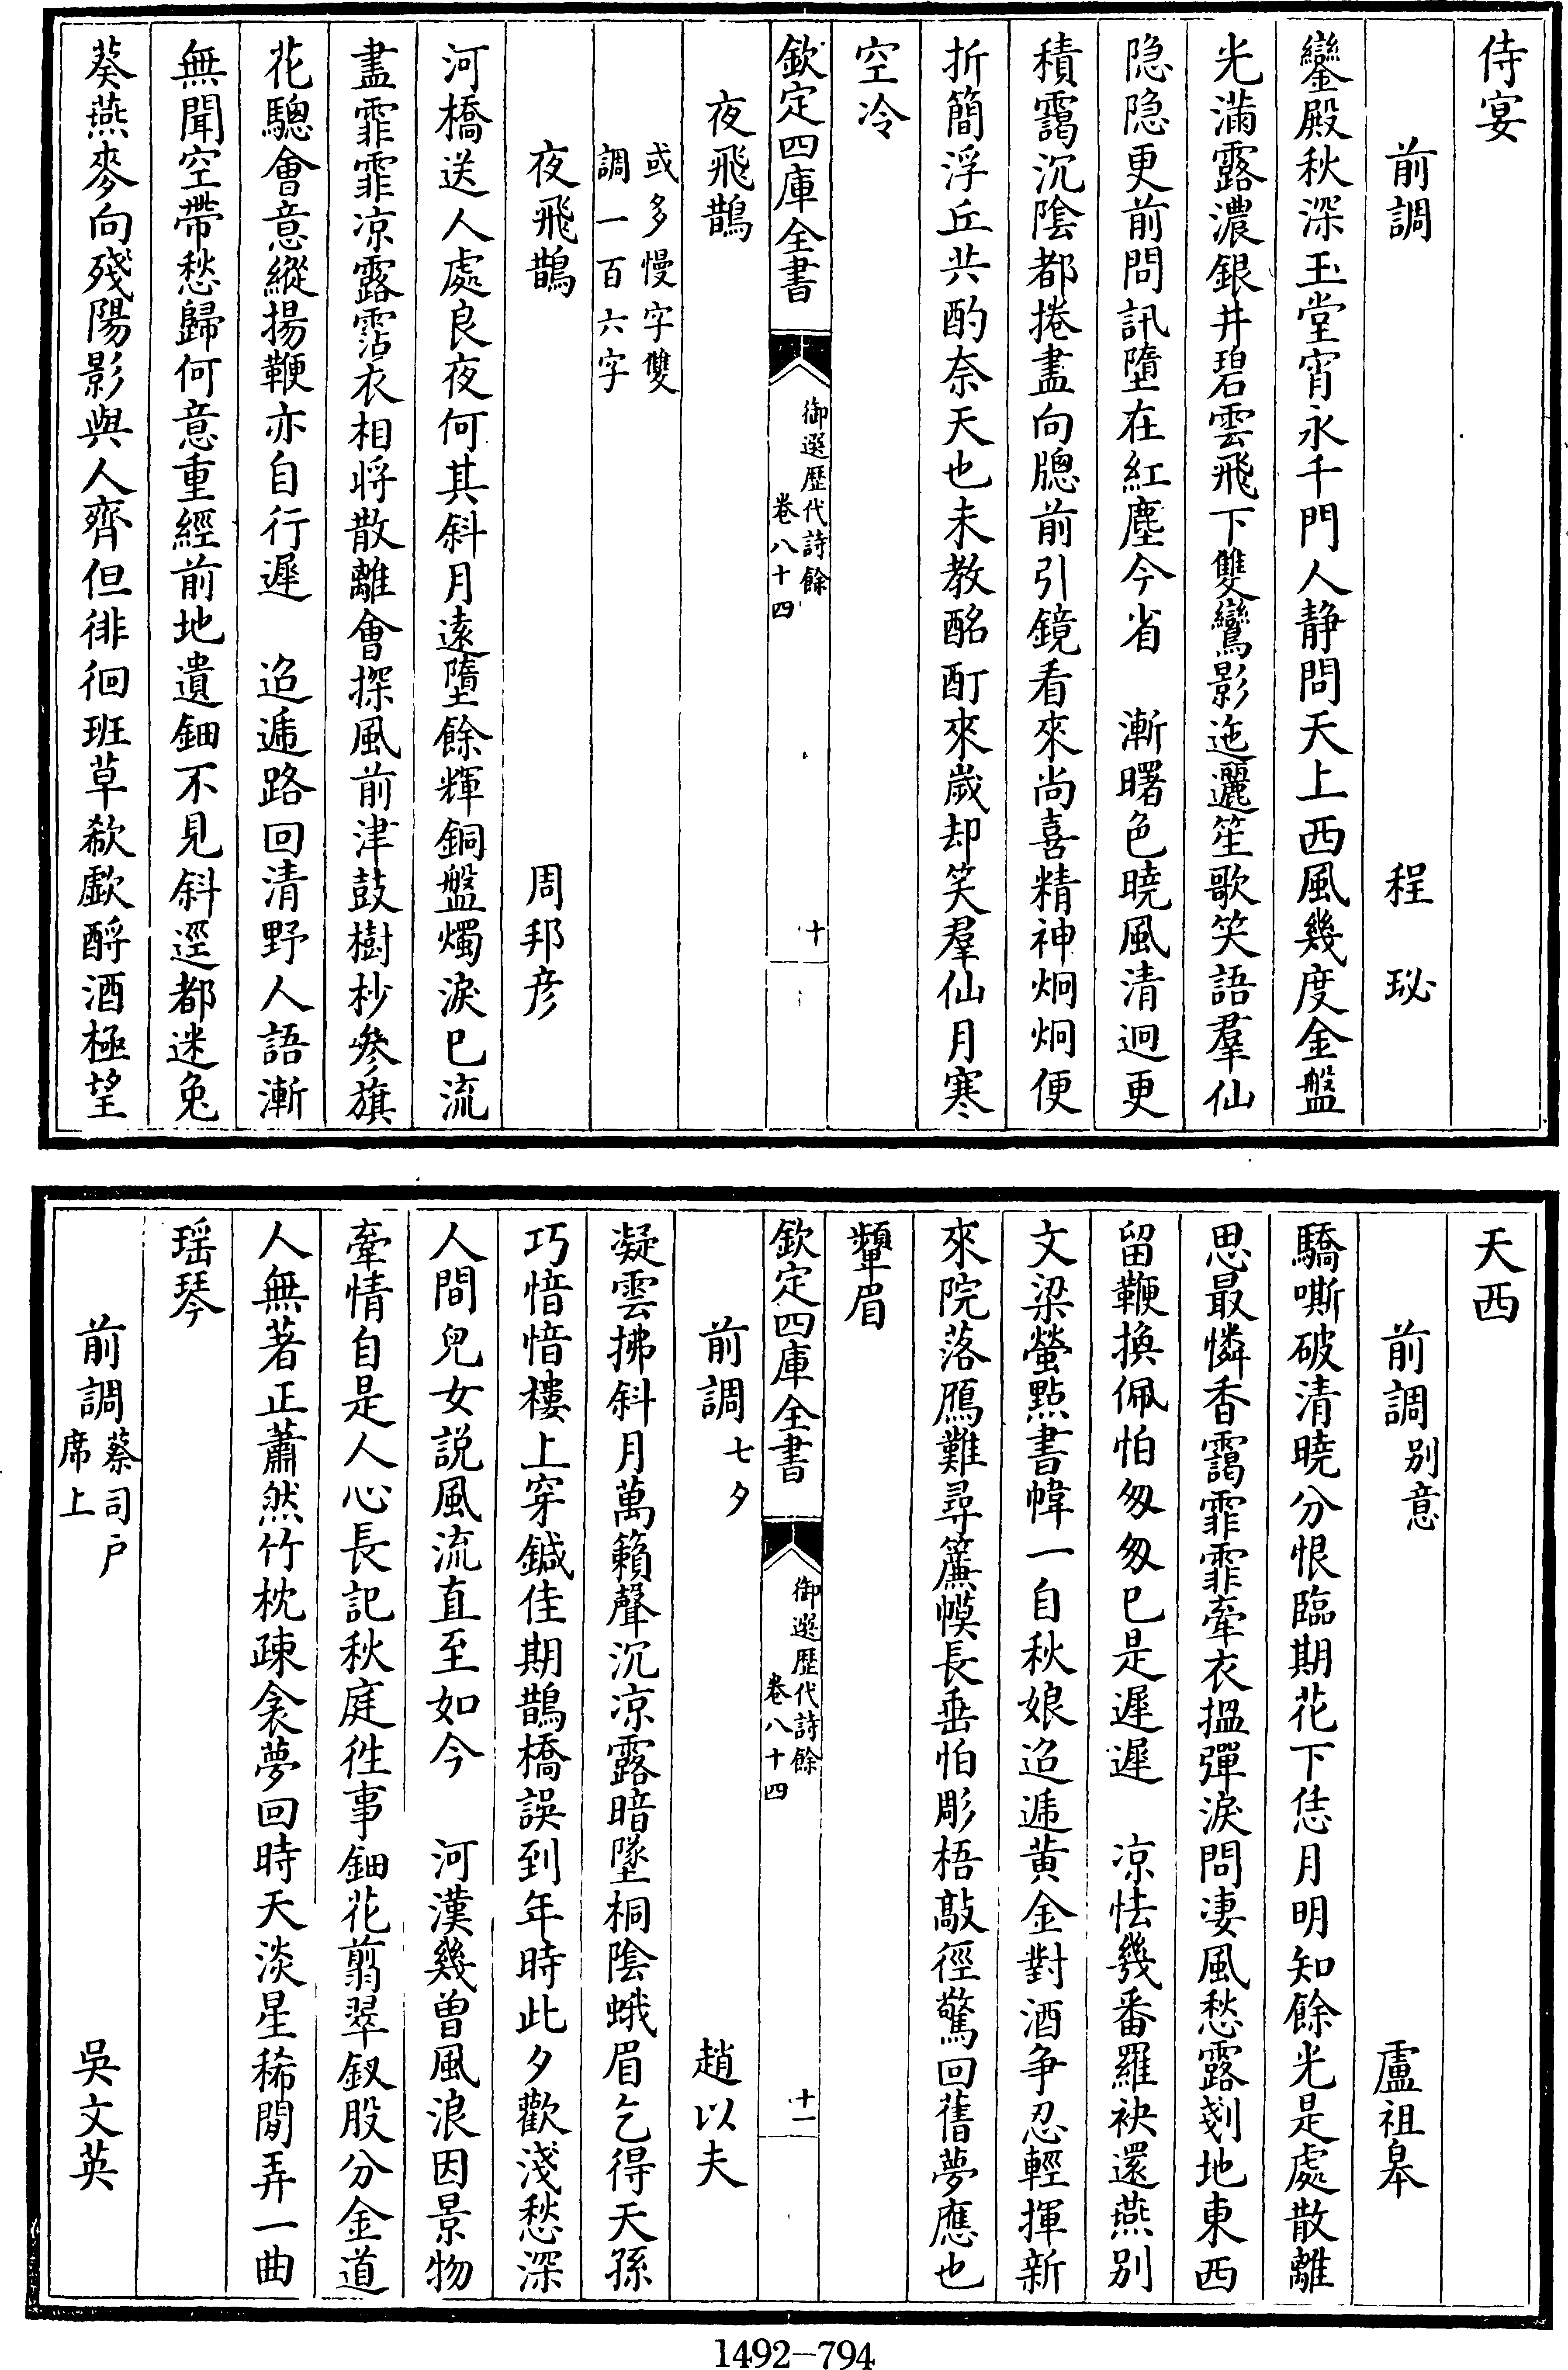 侍宴
前調　程珌
鑾殿秋深玉堂宵永千門人静問天上西風幾度金盤
光滿露濃銀井碧雲飛下雙鸞影迤邐笙歌笑語羣仙
隐隐更前問訊墮在紅塵今省　漸曙色曉風清迥更
積靄沉陰都捲盡向牕前引鏡看來尚喜精神炯炯便
折簡浮丘共酌奈天也未教酩酊來歲却笑羣仙月寒
空冷
欽定四庫全書　御選歴代詩餘　卷八十四　十
夜飛鵲
或多慢字雙
調一百六字
夜飛鵲　周邦彦
河橋送人處良夜何其斜月逺墮餘輝銅盤燭淚已流
盡霏霏凉露霑衣相將散離會探風前津鼓樹杪參旗
花驄會意縱揚鞭亦自行遲　迢遞路回清野人語漸
無聞空帶愁歸何意重經前地遺鈿不見斜逕都迷兔
葵燕麥向殘陽影與人齊但徘徊班草欷歔酹酒極望
天西
前調別意　盧祖皋
驕嘶破清曉分恨臨期花下恁月明知餘光是處散離
思最憐香靄霏霏牽衣揾彈淚問凄風愁露剗地東西
留鞭換佩怕匆匆已是遲遲　凉怯幾番羅袂還燕别
文梁螢點書幃一自秋娘迢遞黄金對酒争忍輕揮新
來院落鴈難尋簾幙長垂怕彫梧敲徑驚回舊夢應也
顰眉
欽定四庫全書　御選歴代詩餘　卷八十四　十一
前調七夕　趙以夫
凝雲拂斜月萬籟聲沉凉露暗墜桐陰蛾眉乞得天孫
巧愔愔樓上穿鍼佳期鵲橋誤到年時此夕歡淺愁深
人間兒女説風流直至如今　河漢幾曾風浪因景物
牽情自是人心長記秋庭徃事鈿花翦翠釵股分金道
人無著正蕭然竹枕疎衾夢回時天淡星稀閒弄一曲
瑶琴
前調蔡司户席上　吳文英
1492–794